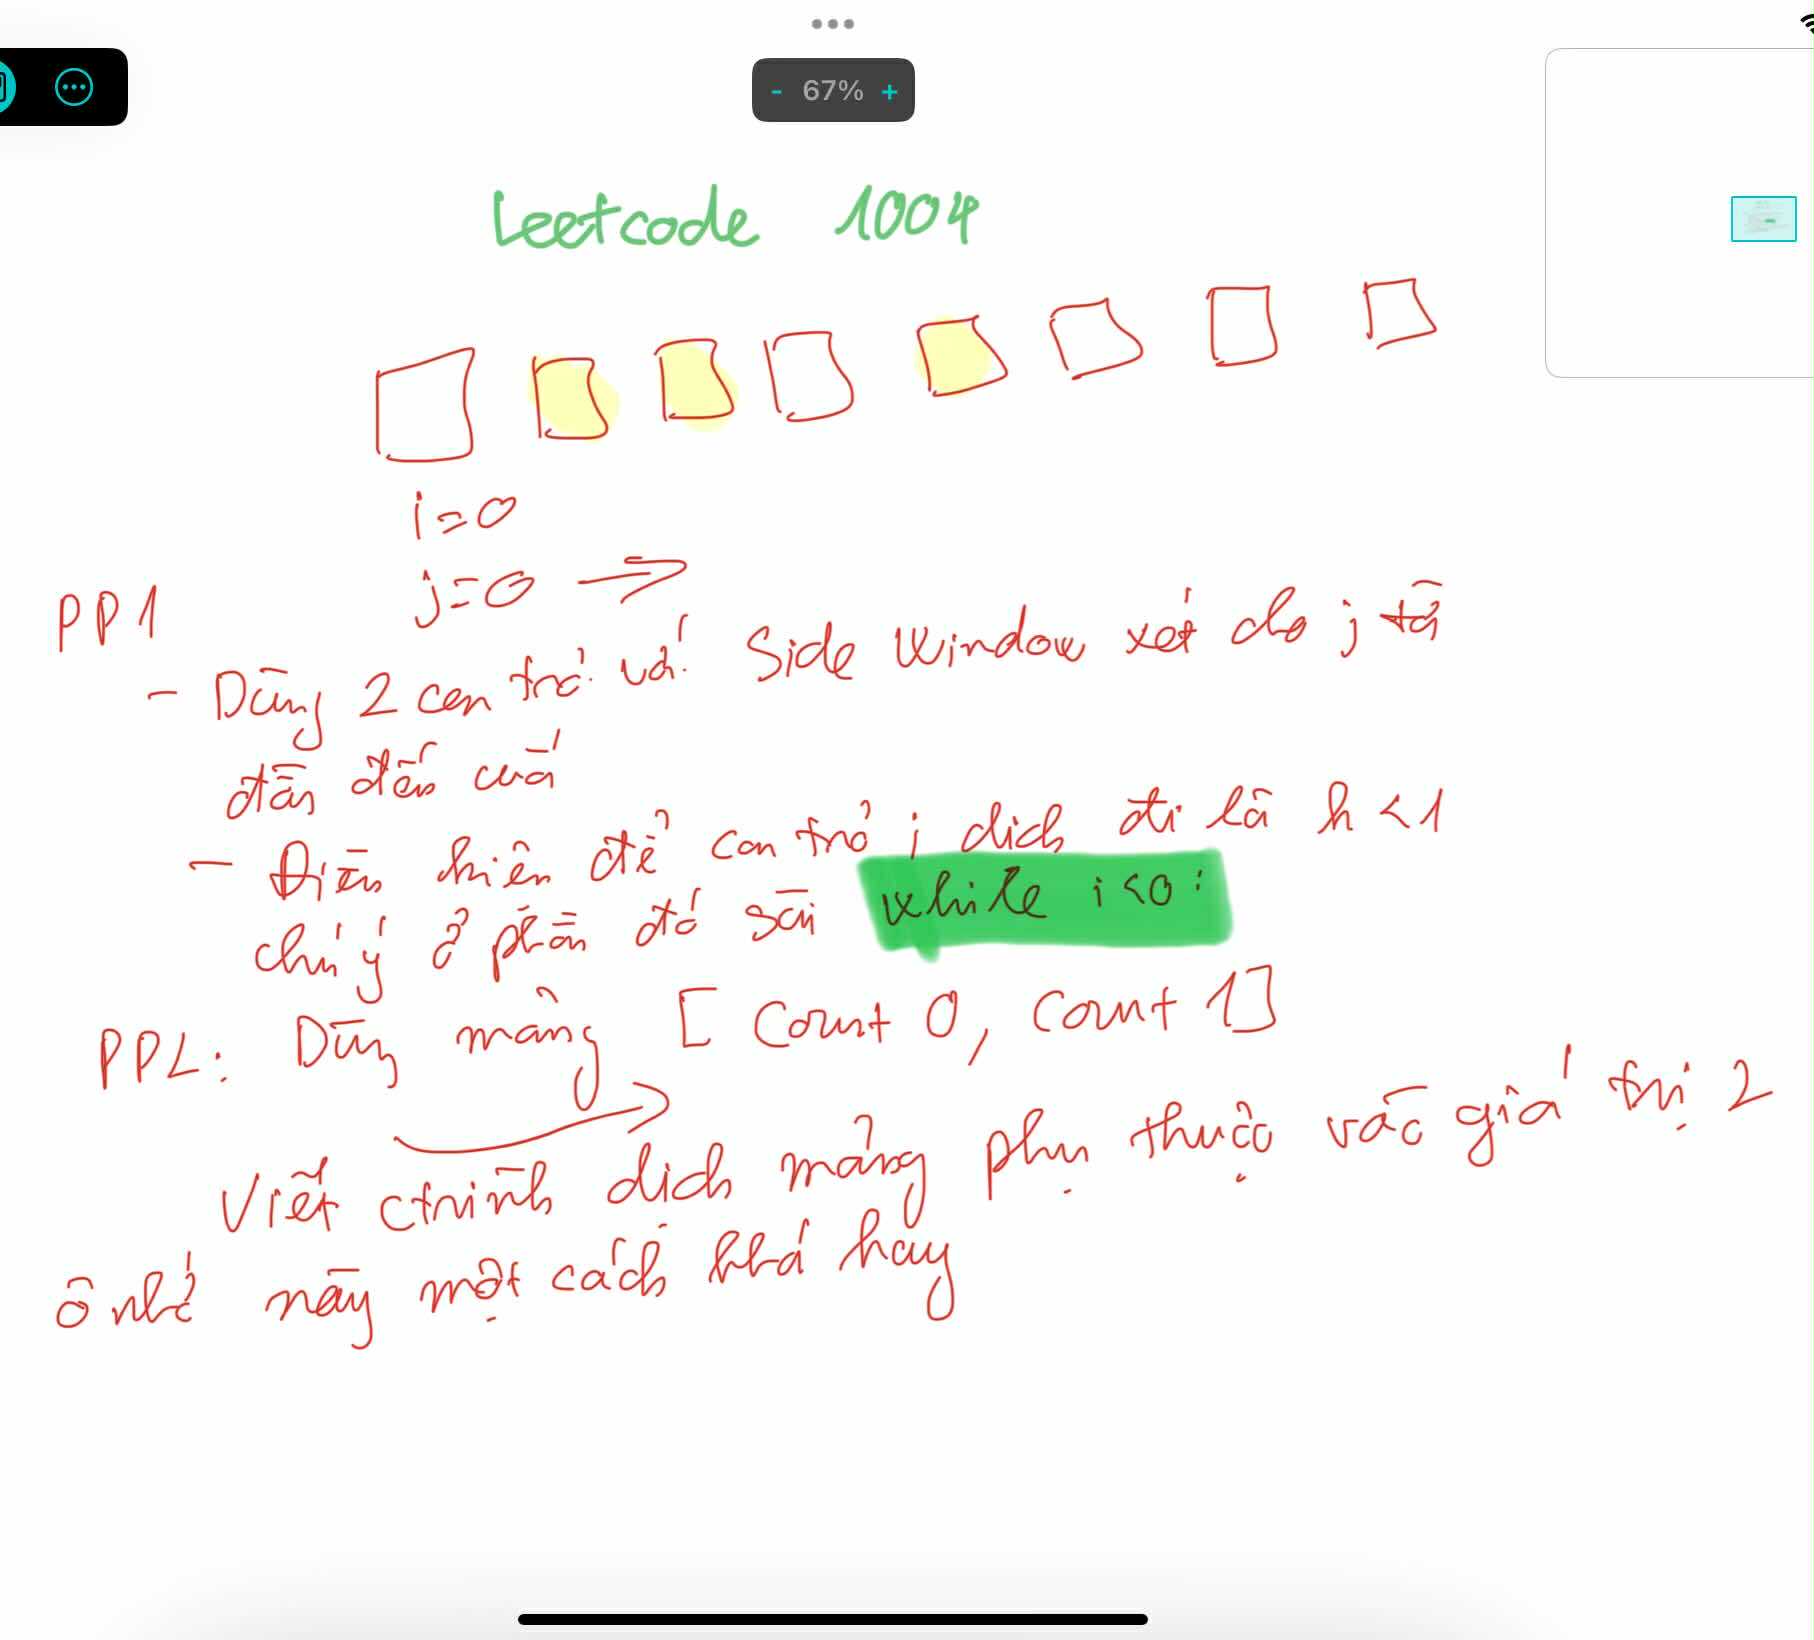 67%
Leetcode 1004
i=0
j=0
PP1
- Dùng 2 con trỏ với Side Window xét cho j từ
đầu đến cuối
- Điều kiện để con trỏ i dịch đi là k < 1
chú ý ở phần đó sài while i < 0 :
PP2: Dùng mảng [ Count 0, Count 1]
Viết ctrình dịch mảng phụ thuộc vào giá trị 2
ô nhớ này một cách khá hay